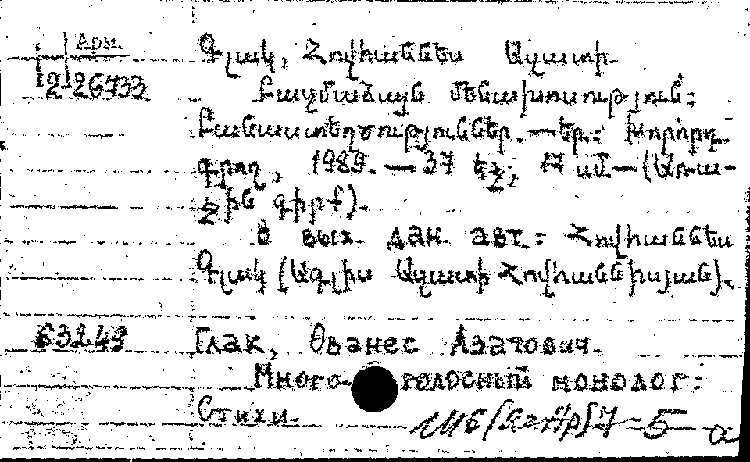 Арм.
2-26733
Գլակ, Հովհաննես Ազատի.
Բազմաձայն մենախոսություն:
Բանաստեղծություններ. — Եր.: Խորհրդ.
գրող, 1989. — 37 էջ; 17 սմ — (Առա-
ջին գիրք).
В вых. дан. авт.: Հովհաննես
Գլակ (Ազատի Հովհաննիսյան).
63249
Глак, Ованес Азатович.
Много-голосный монолог:
Стихи.